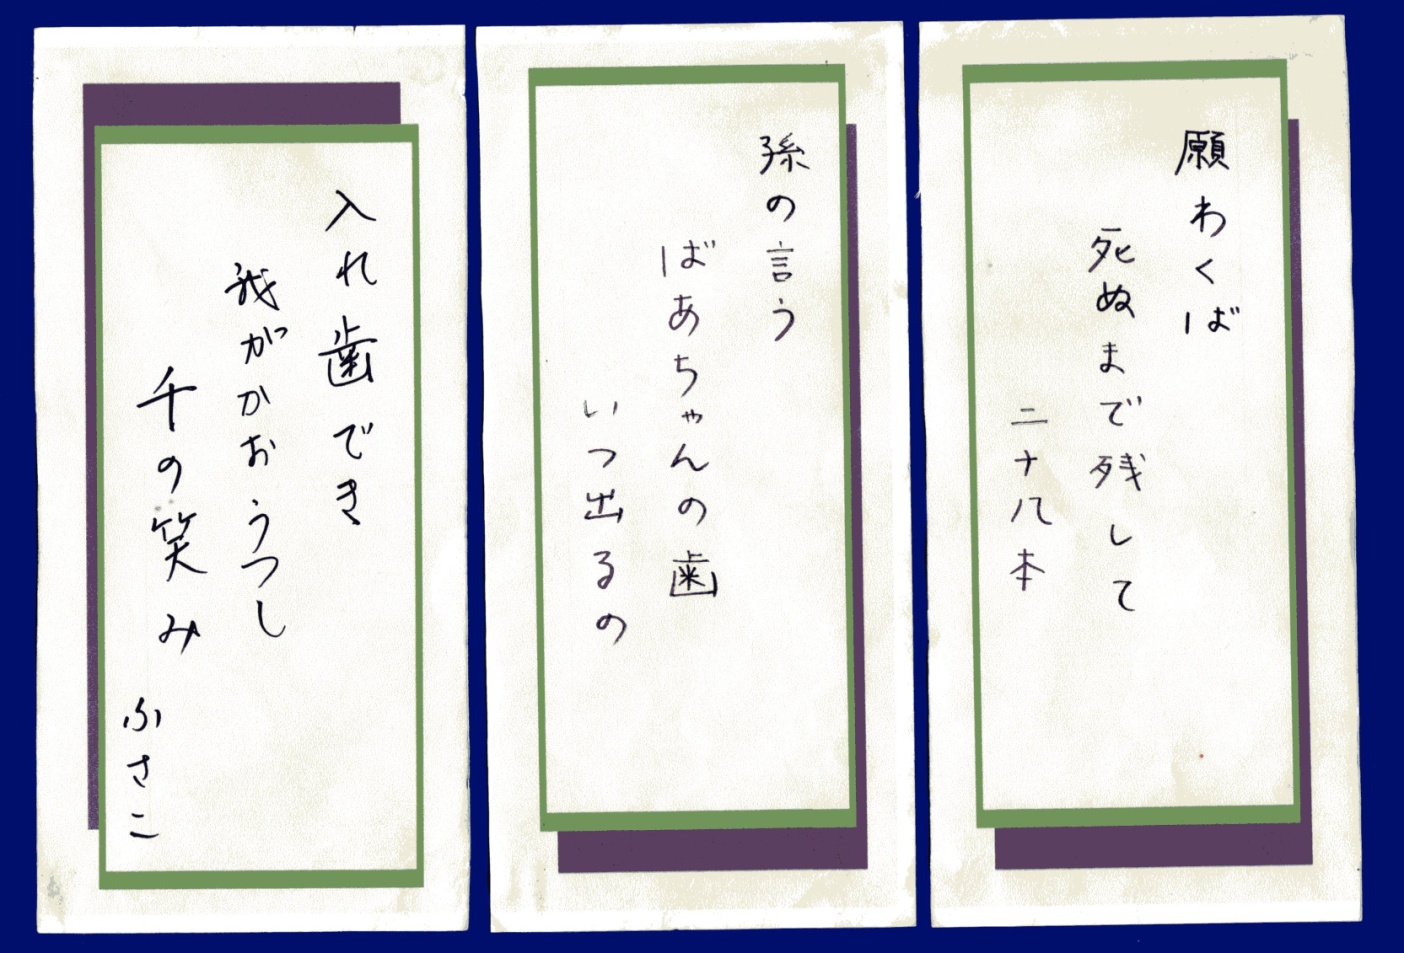 願わくば
死ぬまで残して
二十八本
孫の言う
ばあちゃんの歯
いつ出るの
入れ歯でき
我がかおうつし
千の笑み
ふさこ